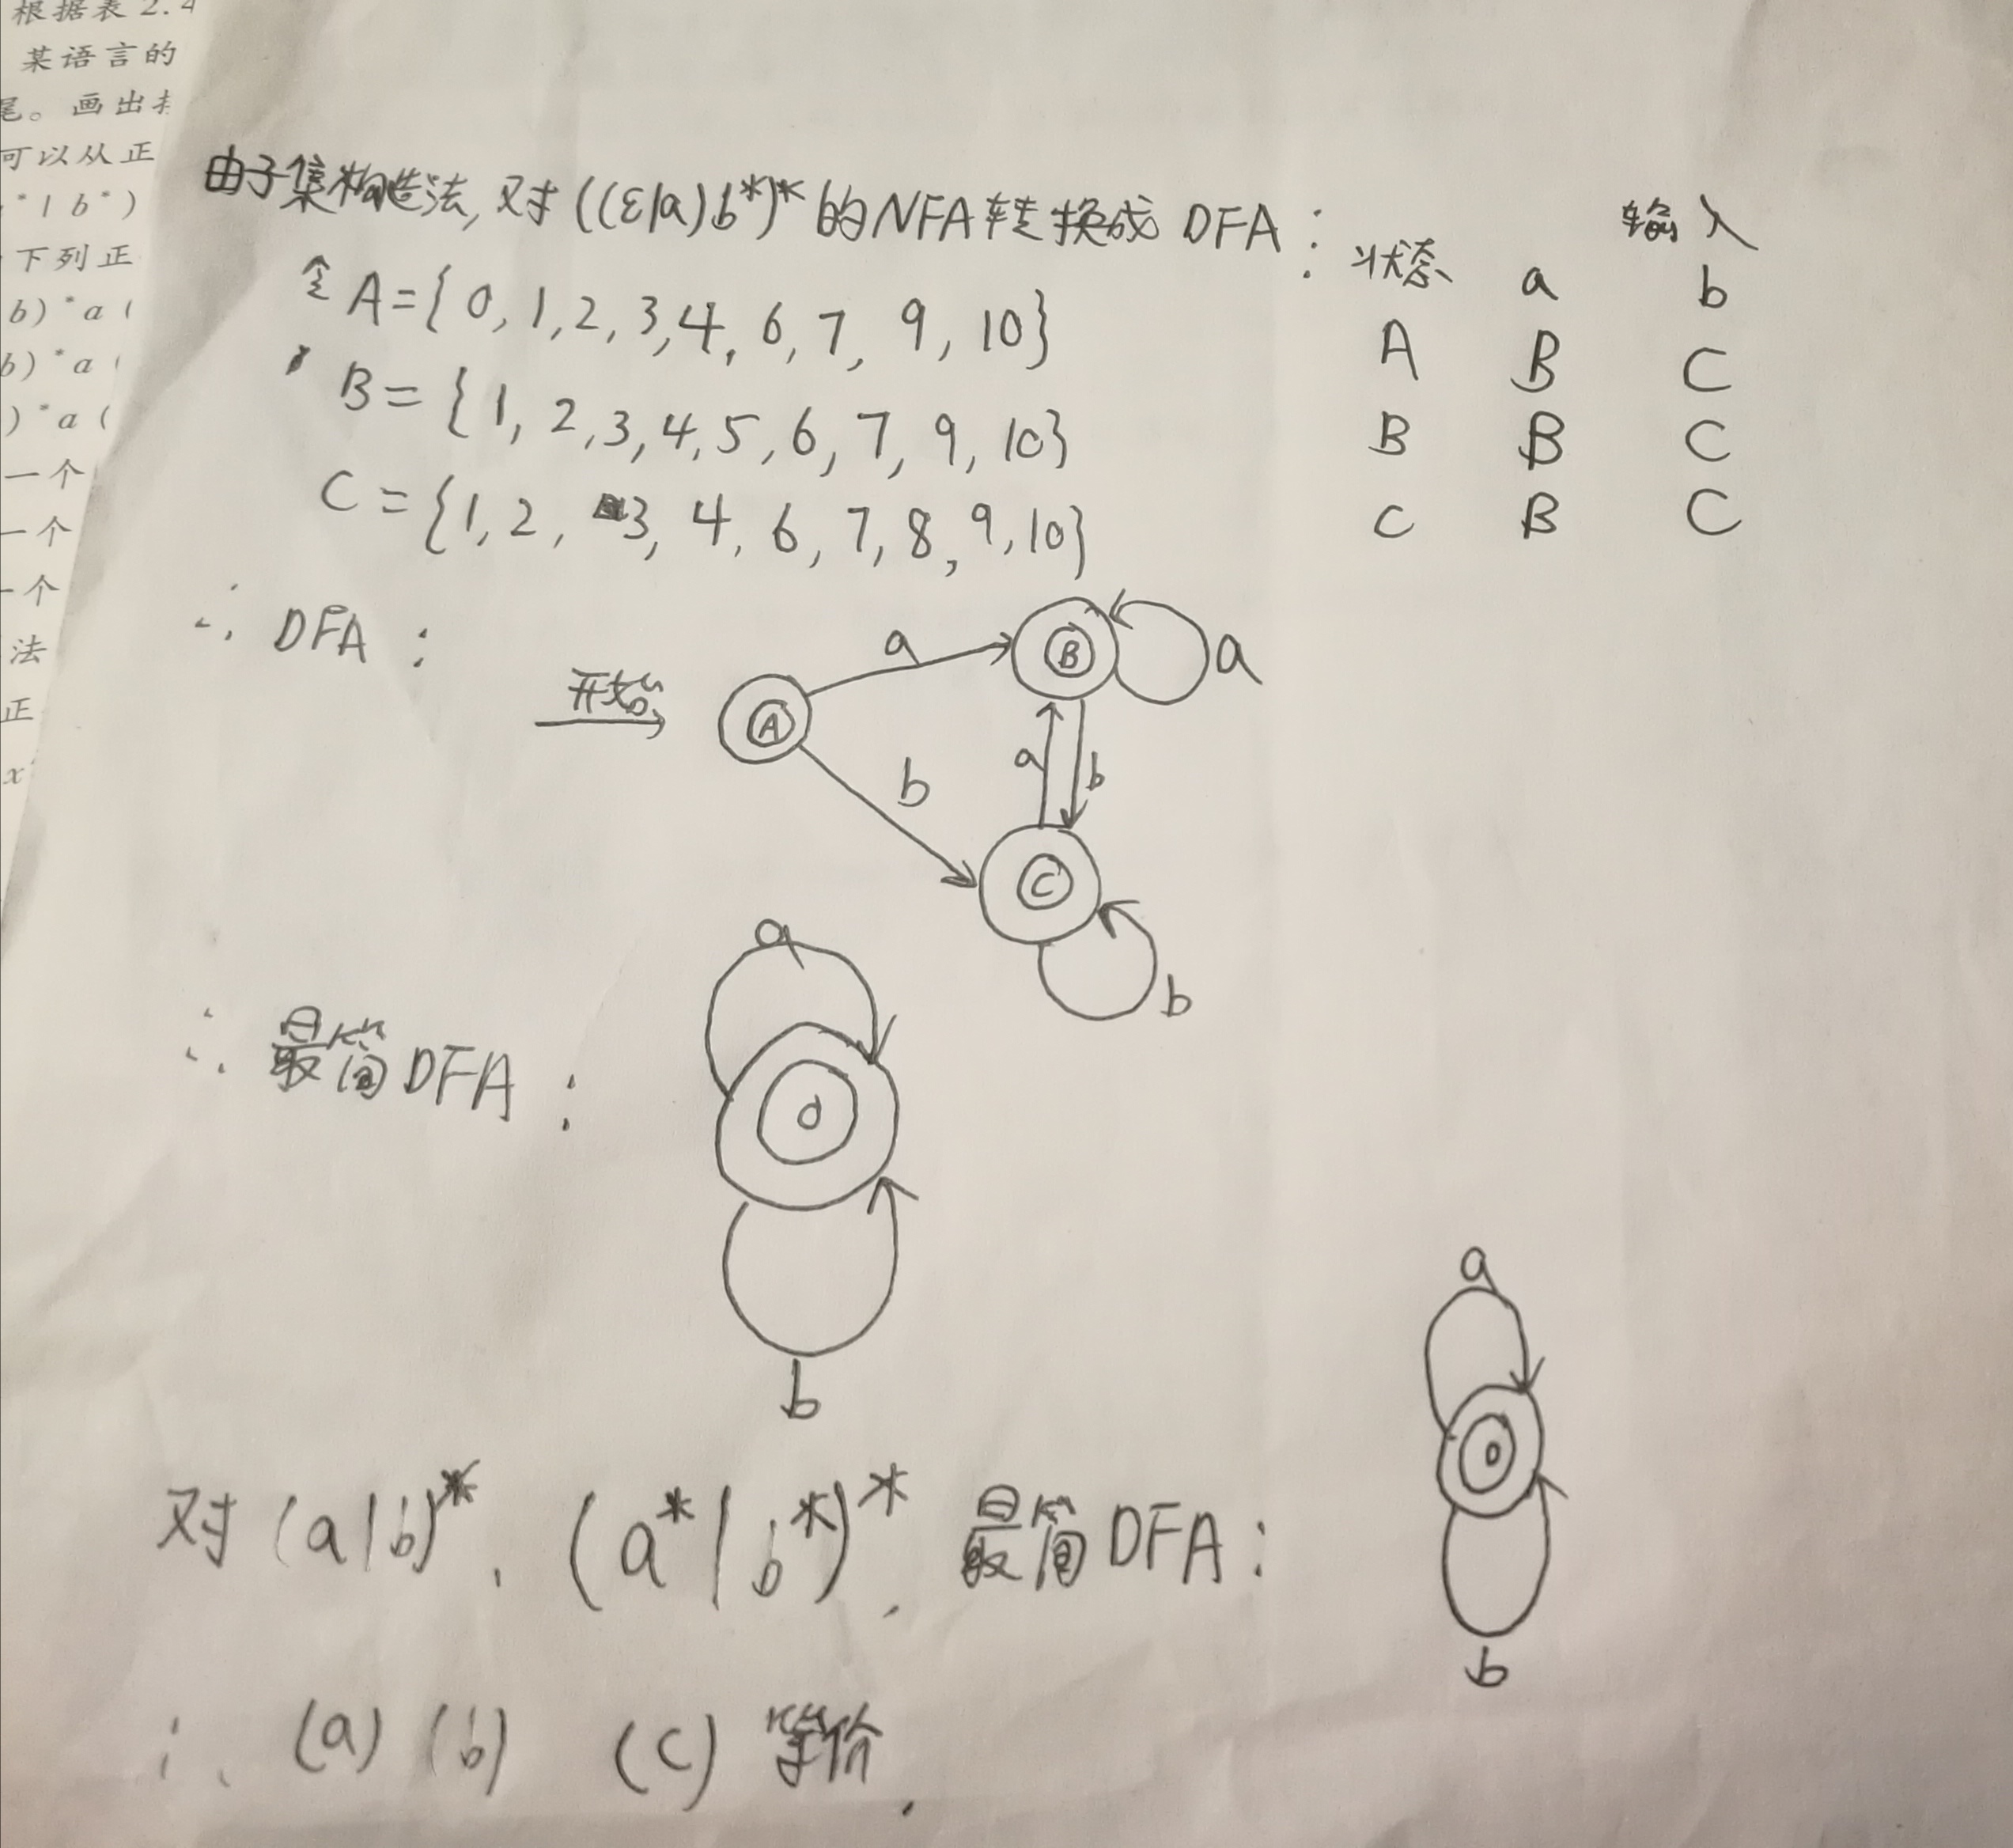 根据表 2.4
某语言的
尾。画出
可以从正
*|b*)
下列正
b)*a(
b)*a(
)*a(
一个
一个
一个
法
正
x
由子集构造法,对((ε|a)b*)*的NFA转换成DFA:
令A={0,1,2,3,4,6,7,9,10}
B={1,2,3,4,5,6,7,9,10}
C={1,2,3,4,6,7,8,9,10}
输入
状态 a b
A B C
B B C
C B C
∴ DFA:
开始
A
a
B
a
b
a
b
C
b
∴ 最简DFA:
a
0
b
对(a|b)*、(a*|b*)*,最简DFA:
a
0
b
∴ (a) (b) (c) 等价.